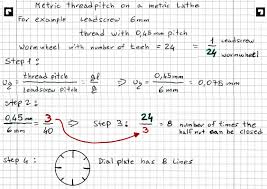 Metric threadpitch on a metric Lathe
For example Leadscrew 6mm
thread with 0,45mm pitch
Wormwheel with number of teeth = 24 = 1 Leadscrew / 24 wormwheel
Step 1:
ug = thread pitch / Leadscrew pitch = gl / Pl → ug = 0,45mm / 6mm = 0,075 mm
Step 2:
0,45mm / 6mm = 3 / 40 → Step 3: 24 / 3 = 8 number of times the half nut can be closed
Step 4: Dial plate has 8 Lines